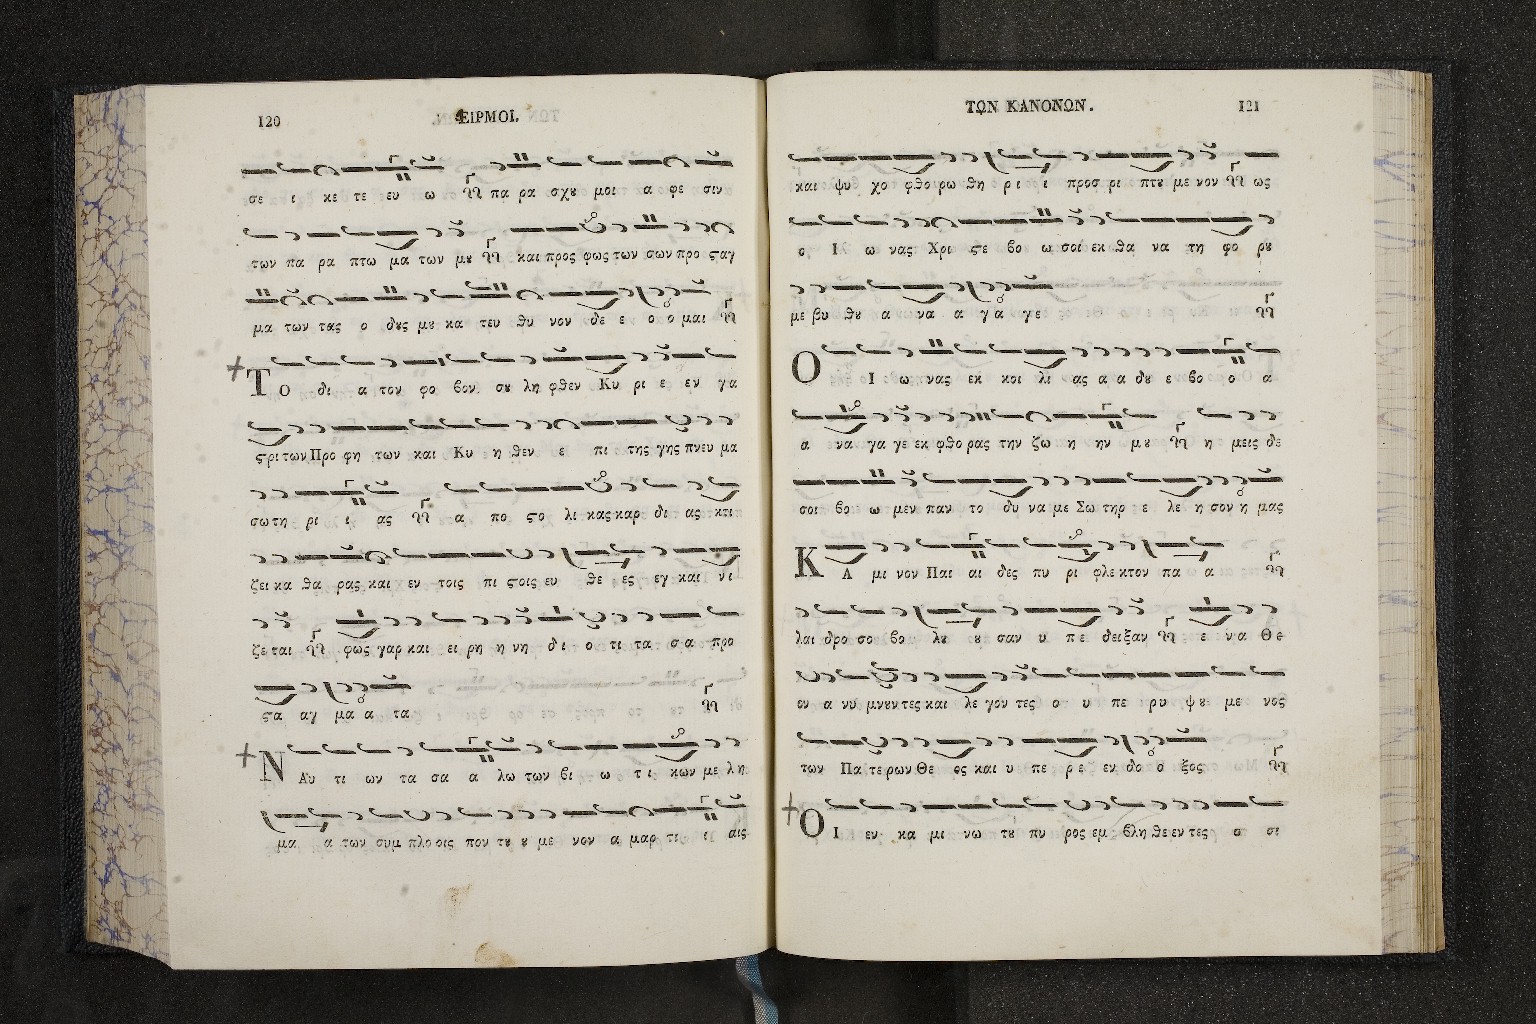 120 ΕΙΡΜΟΙ.
σε ι κε τε ευ ω πα ρα σχȣ μοι α φε σιν
των πα ρα πτω μα των μȣ και προς φως των σων προ ϛαγ
μα των τας ο δȣς μȣ κα τευ θυ νον δε ε ο ο μαι
ΤΟ δι α τον φο βον σȣ λη φθεν Κυ ρι ε εν γα
ϛρι των Προ φη των και Κυ η θεν ε πι της γης πνευ μα
σω τη ρι ι ας α πο ϛο λι κας καρ δι ας κτι
ζει κα θα ρας και εν τοις πι ϛοις ευ θε ες εγ και νι
ζε ται φως γαρ και ει ρη η νη δι ο τι τα σα προ
ϛα αγ μα α τα
ΝΑυ τι ων τα σα α λω των βι ω τι κων με λη
μα α των συμ πλο οις πον τȣ ȣ με νον α μαρ τι ι αις
ΤΩΝ ΚΑΝΟΝΩΝ. 121
και ψυ χο φθο ρω θη ρι ι προσ ρι πτȣ με νον ως
ο Ι ω νας Χρι ϛε βο ω σοί εκ θα να τη φο ρȣ
με βυ θȣ α να α γα γε
ΟΙ ω νας εκ κοι λι ας α α δȣ ε βο ο α
α να γα γε εκ φθο ρας την ζω η ην μȣ η μεις δε
σοι βο ω μεν παν το δυ να με Σω τηρ ε λε η σον η μας
ΚΑ μι νον Παι αι δες πυ ρι φλε κτον πα α
λαι δρο σο βο λȣ ȣ σαν υ πε δειξαν ε να Θε
ον α νυ μνȣν τες και λε γον τες ο υ πε ρυ ψȣ με νος
των Πα τε ρων Θε ος και υ πε ρε εν δο ο ξος
ΟΙ εν κα μι νω τȣ πυ ρος εμ βλη θε εν τες ο σι